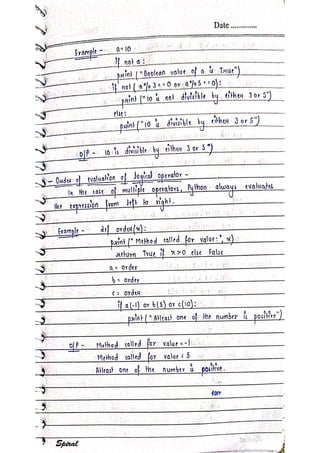 Date ..............
Example - a=10
if not a :
print ("Boolean value of a is True")
if not (a%3==0 or a%5==0):
print("10 is not divisible by either 3 or 5")
else:
print("10 is divisible by either 3 or 5")
O/P - 10 is divisible by either 3 or 5
- Order of evaluation of logical operator -
In the case of multiple operators, Python always evaluates
the expression from left to right.
Example - def order(x):
print("Method called for value:", x)
return True if x>0 else False
a = order
b = order
c = order
if a(-1) or b(5) or c(10):
print("Atleast one of the number is positive")
O/P - Method called for value = -1
Method called for value = 5
Atleast one of the number is positive.
Spiral